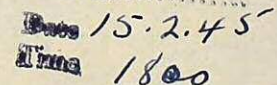 Date 15.2.45
Time 1800